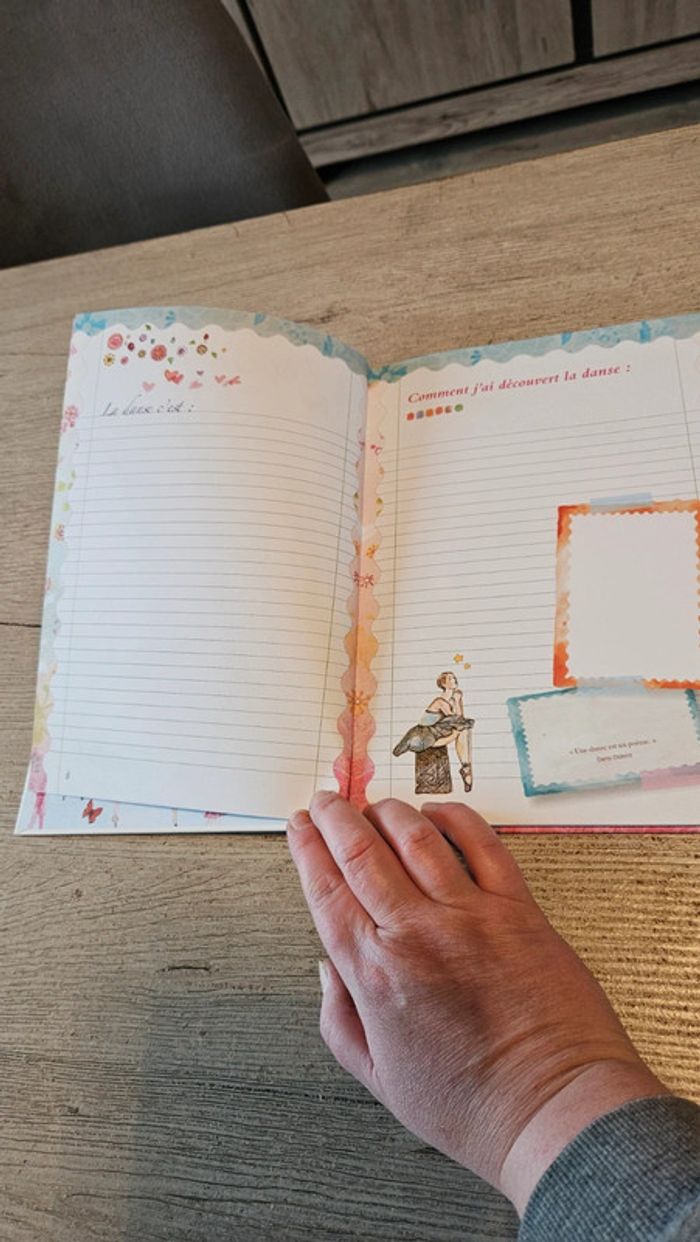 La danse c'est :
Comment j'ai découvert la danse :
« Une danse est un poème. »
Denis Diderot